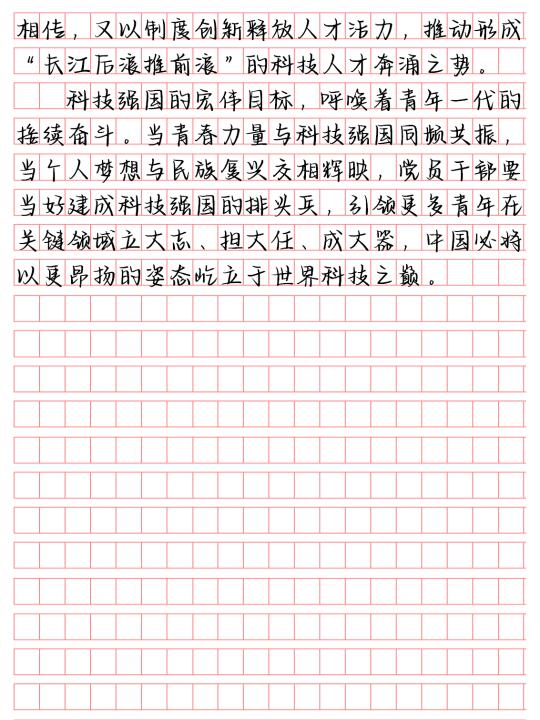 相传，又以制度创新释放人才活力，推动形成
“长江后浪推前浪”的科技人才奔涌之势。
科技强国的宏伟目标，呼唤着青年一代的
接续奋斗。当青春力量与科技强国同频共振，
当个人梦想与民族复兴交相辉映，党员干部要
当好建成科技强国的排头兵，引领更多青年在
关键领域立大志、担大任、成大器，中国必将
以更昂扬的姿态屹立于世界科技之巅。